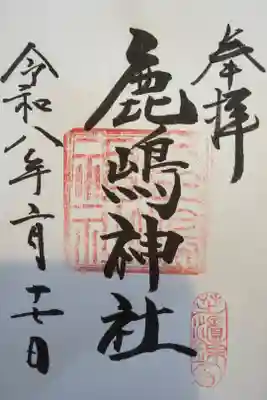 奉拝
鹿嶋神社
令和八年二月十七日